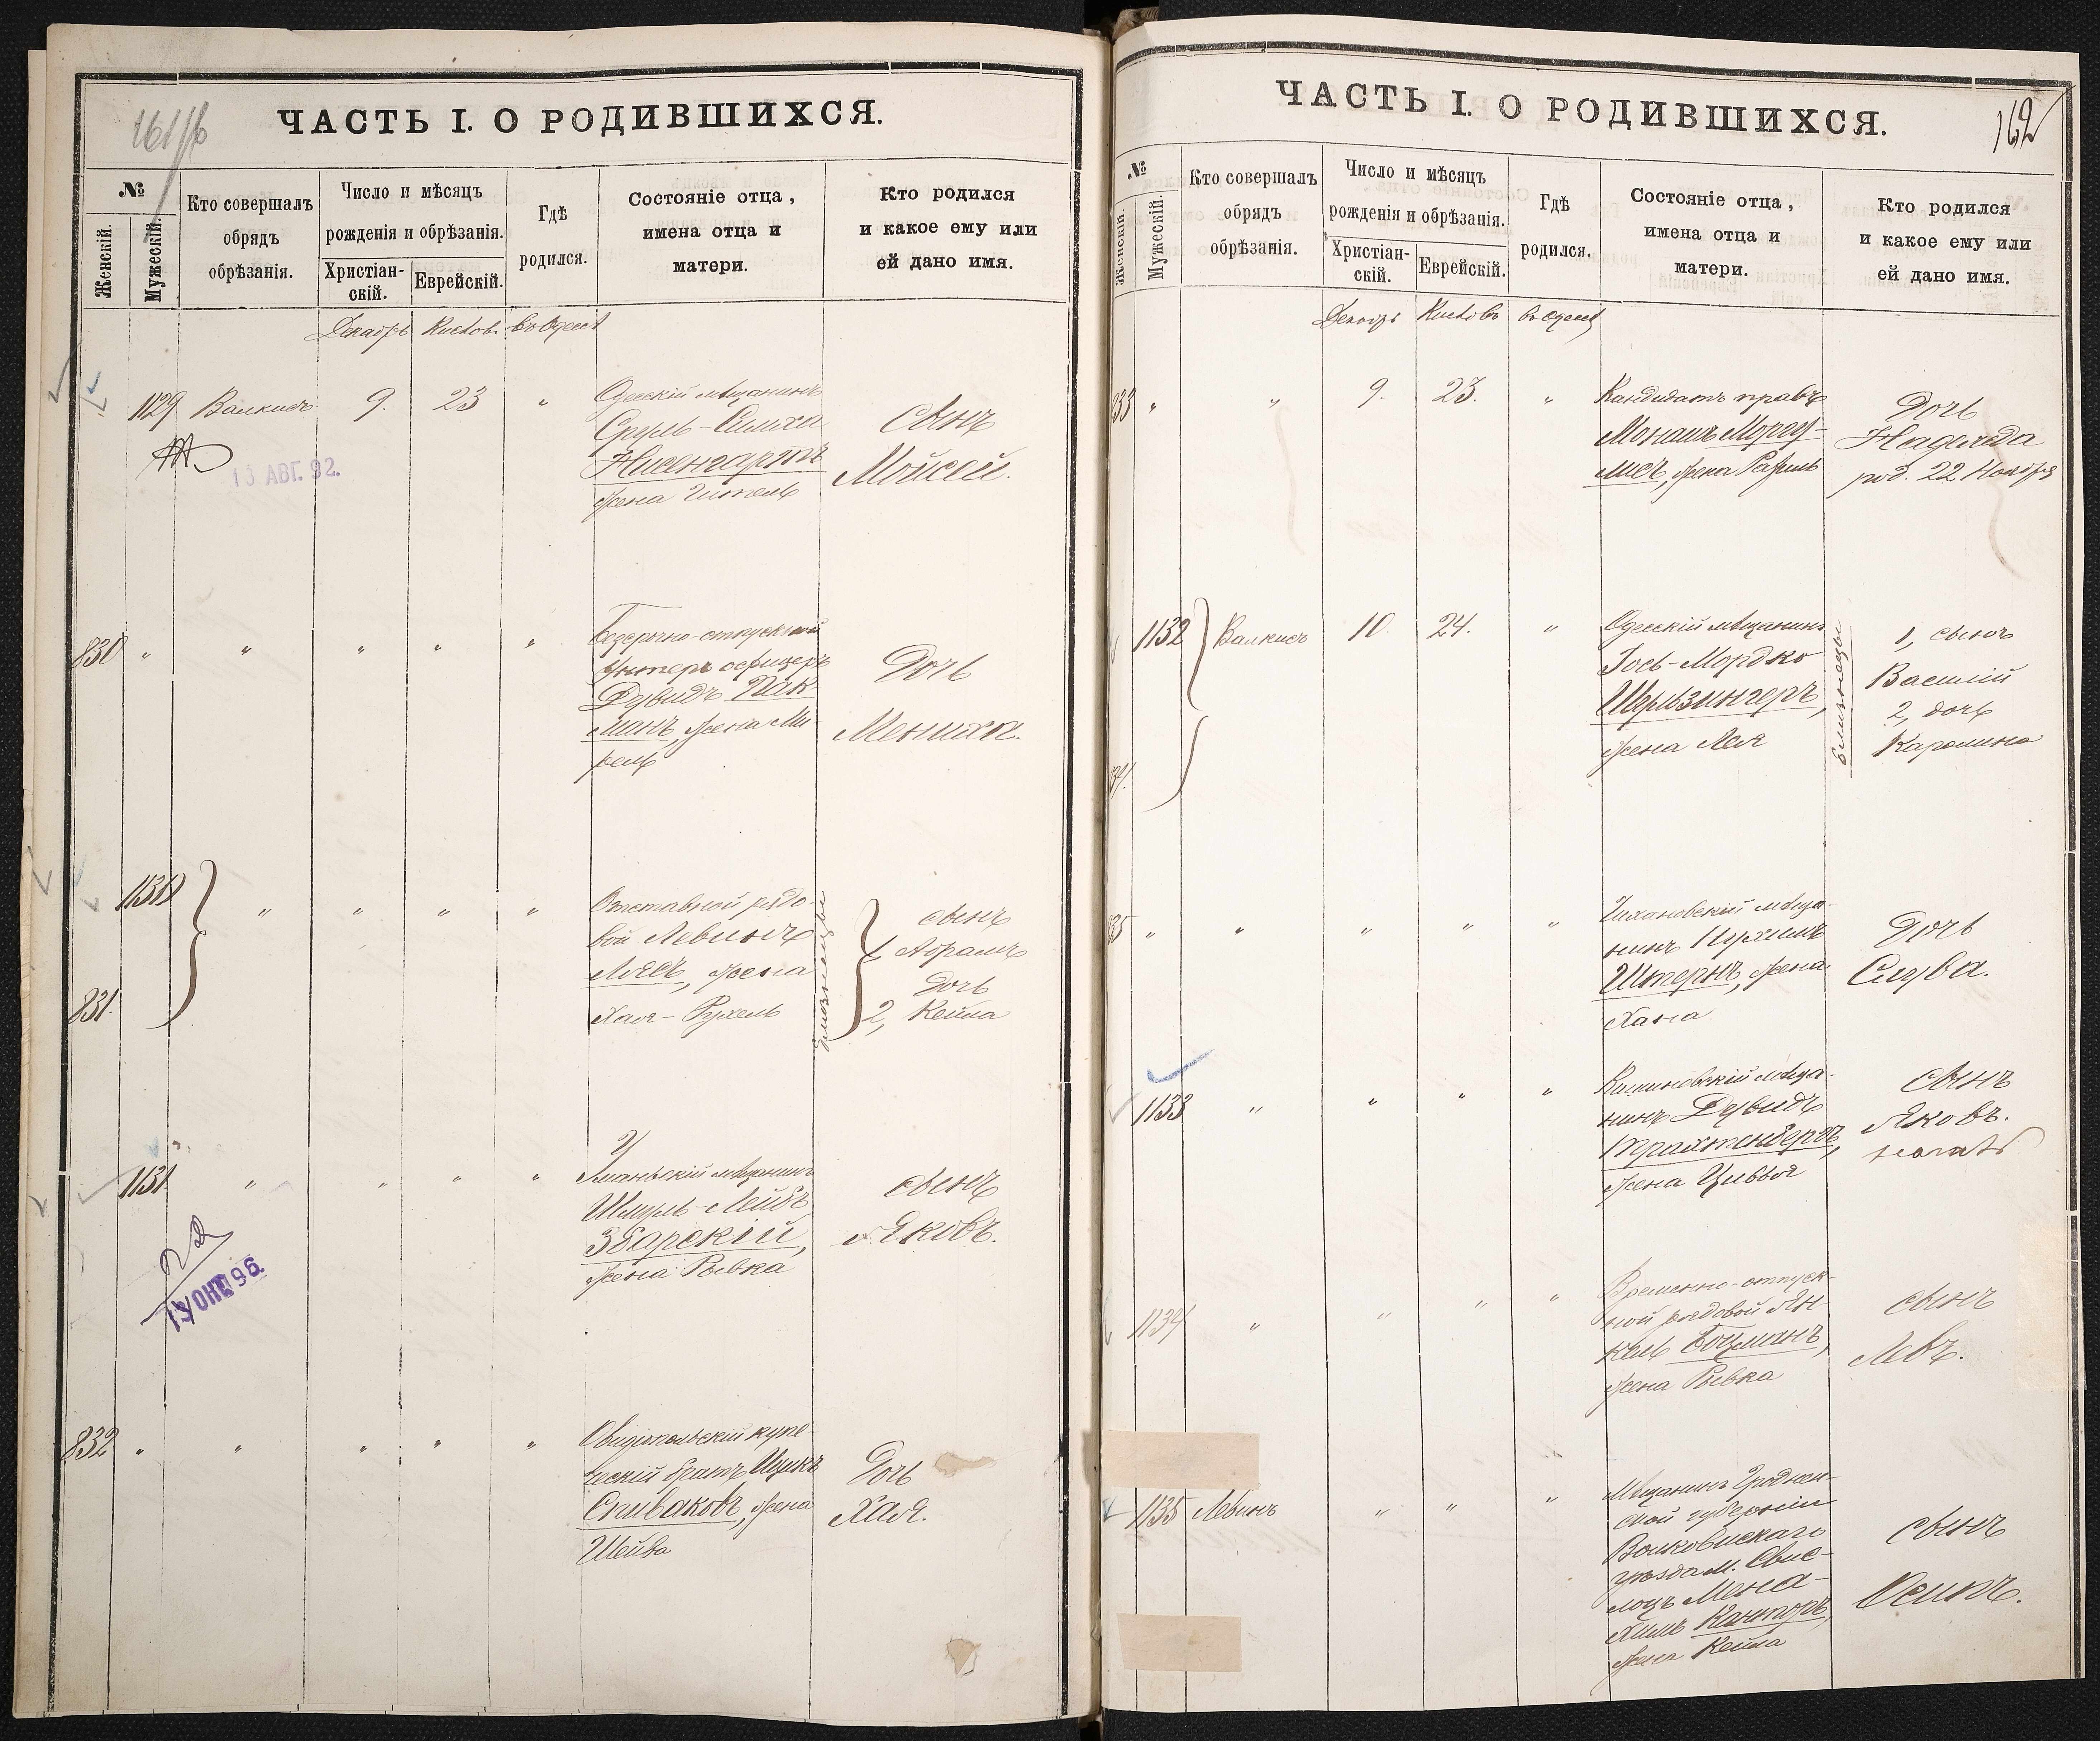 161/б
ЧАСТЬ I. О РОДИВШИХСЯ.
№
Женскій.
Мужескій.
Кто совершалъ
обрядъ
обрѣзанія.
Число и мѣсяцъ
рожденія и обрѣзанія.
Христіан-
скій.
Еврейскій.
Гдѣ
родился.
Состояніе отца,
имена отца и
матери.
Кто родился
и какое ему или
ей дано имя.
Декабрь Кислевъ въ Одессѣ
1129 Валкисъ 9. 23 "
Одесскій мѣщанинъ
Сруль-Симха
Нисенгартъ
жена Гитель
сынъ
Мойсей.
13 АВГ. 92.
830 " " " " "
Безсрочно-отпускной
унтеръ офицеръ
Дувидъ Пак-
манъ, жена Ми-
рель
Дочь
Мениха.
1130 " " " "
831.
Отставной рядо-
вой Левинъ
Лясъ, жена
Хая-Рухель
близнецы
сынъ
1, Абрамъ
Дочь
2, Кейла
1131 " " " "
Уманьскій мѣщанинъ
Шмуль-Лейбъ
Збарскій,
жена Ривка
сынъ
Яковъ.
832 " " " " "
Овидіопольскій купе-
ческій братъ Ицикъ
Спиваковъ, жена
Шейва
Дочь
Хая.
162
ЧАСТЬ I. О РОДИВШИХСЯ.
№
Женскій.
Мужескій.
Кто совершалъ
обрядъ
обрѣзанія.
Число и мѣсяцъ
рожденія и обрѣзанія.
Христіан-
скій.
Еврейскій.
Гдѣ
родился.
Состояніе отца,
имена отца и
матери.
Кто родился
и какое ему или
ей дано имя.
Декабрь Кислевъ въ Одессѣ
833 " " 9. 23. "
Кандидатъ правъ
Монашъ Моргу-
лисъ, жена
Дочь
Надежда
род. 22 Ноября
1132 Валкисъ 10. 24. "
834.
Одесскій мѣщанинъ
Іось-Мордко
Шулзингеръ,
жена Лея
близнецы
1, сынъ
Василій
2, дочь
Каролина
835 " " " " "
мѣща-
нинъ Нухимъ
Штернъ, жена
Хана
Дочь
Слува.
1133 " " " "
Кишиневскій мѣща-
нинъ Дувидъ
Трахтенбергъ,
жена Цивья
сынъ
Яковъ.
1134 " " " "
Временно-отпуск-
ной рядовой Ян-
кель Боцманъ,
жена Ривка
сынъ
Левъ.
1135 Левинъ " " "
Мѣщанинъ Гроднен-
ской губерніи
Волковискаго
уѣзда м. Свис-
лочъ Мена-
химъ Канторъ,
жена Кейла
сынъ
Осипъ.